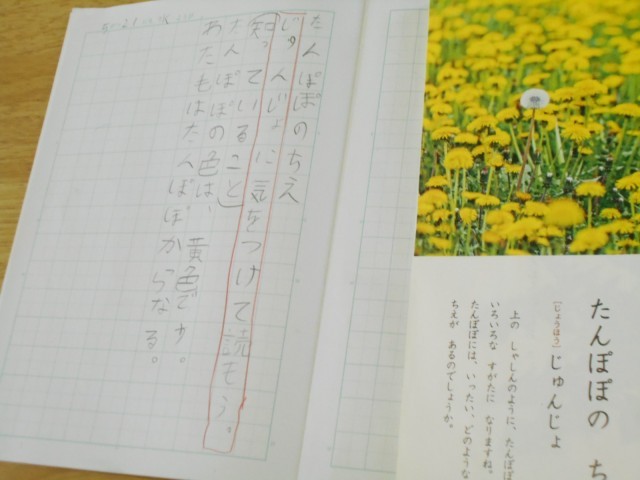 たんぽぽの ち
[じょうほう] じゅんじょ
上の しゃしんのように、たんぽぽ
いろいろな すがたに なりますね。
たんぽぽには、いったい、どのような
ちえが あるのでしょうか。
たんぽぽのちえ
じゅんじょに気をつけて読もう。
知っていること
たんぽぽの色は、黄色です。
わたもはたんぽぽからなる。